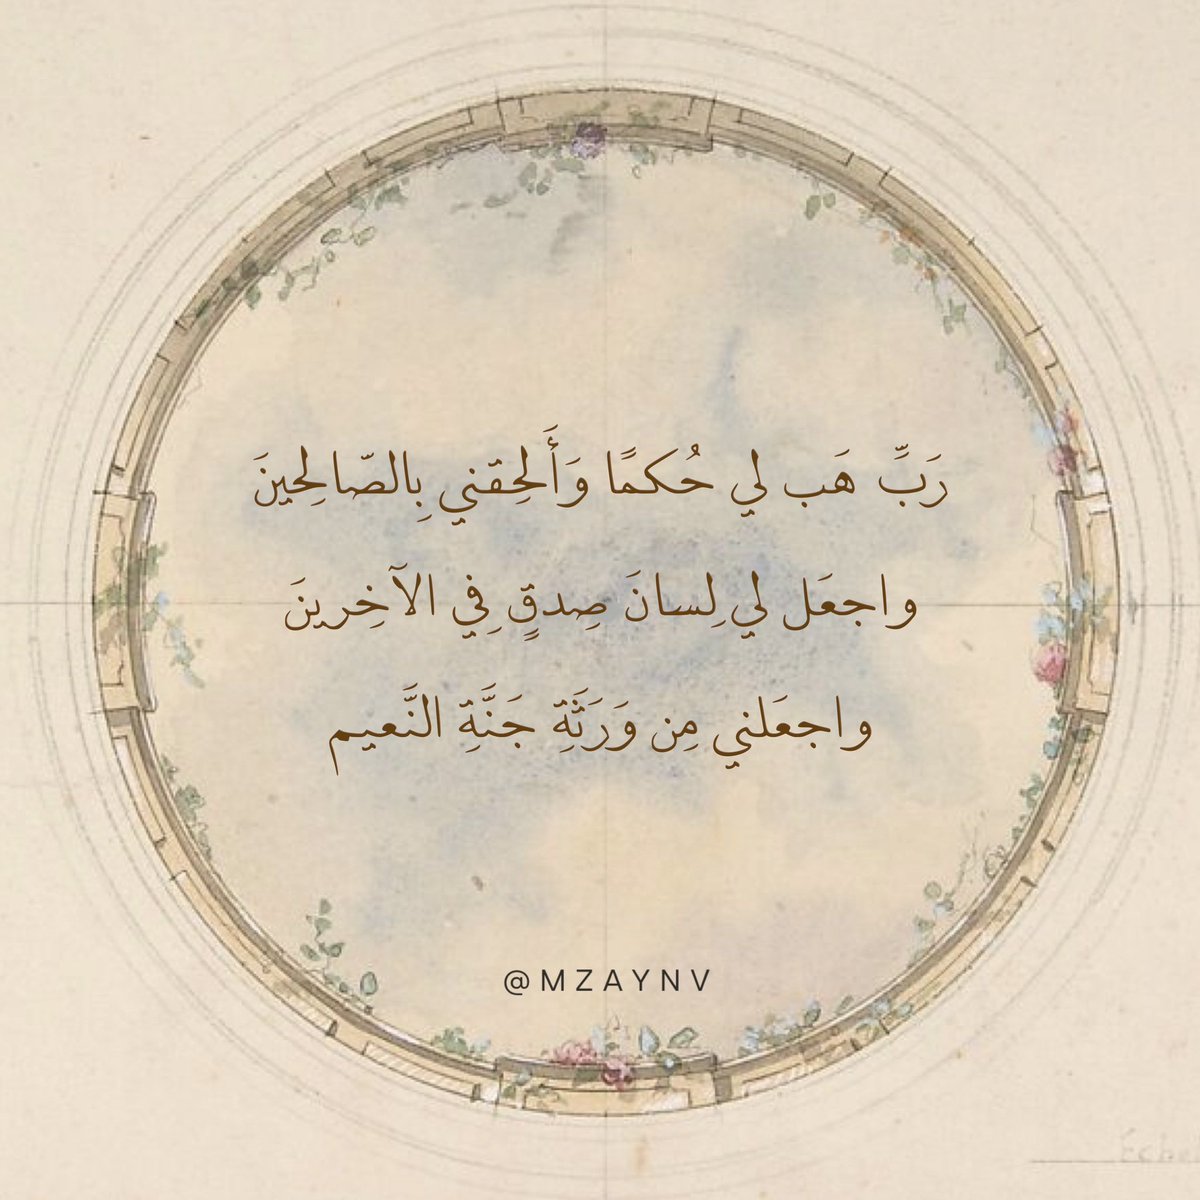 رَبِّ هَب لي حُكمًا وَأَلحِقني بِالصّالِحينَ
واجعَل لي لِسانَ صِدقٍ فِي الآخِرينَ
واجعَلني مِن وَرَثَةِ جَنَّةِ النَّعيم
@MZAYNV